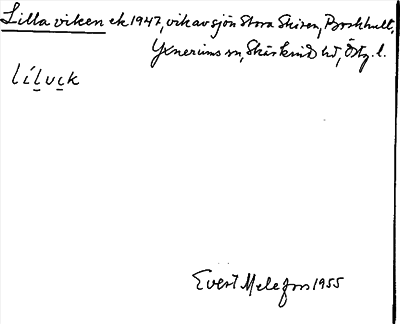 Lilla viken ek 1947, vik av sjön Stora Skiren, Borkhult,
Yxnerums sn, Skärkinds hd, Östg. l.
lílvck
Evert Melefors 1955